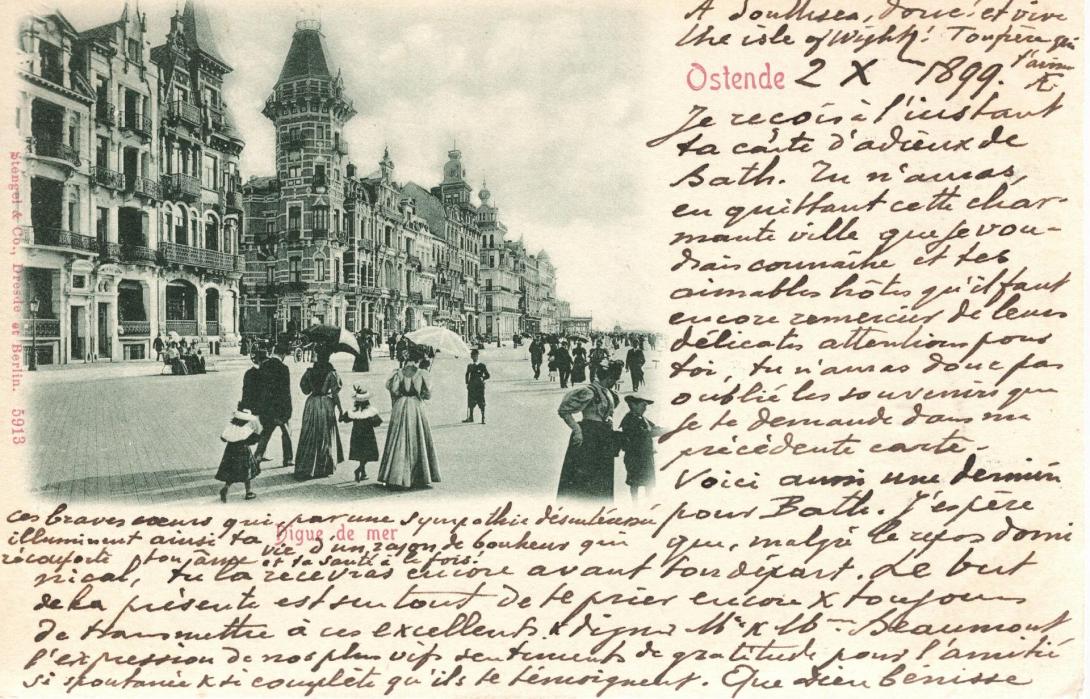 A Southsea, donc! et vive
the isle of Wight! Ton père qui
t'aime
Ostende 2 X 1899.
Je reçois à l'instant
ta carte d'adieux de
Bath. Tu n'auras,
en quittant cette char-
mante ville que je vou-
drais connaître et tes
aimables hôtes qu'il faut
encore remercier de leurs
délicates attentions pour
toi, tu n'auras donc pas
oublié les souvenirs que
je te demande dans ma
précédente carte.
Voici aussi une dernière
pour Bath. J'espère
que, malgré le repos domi
nical, tu la recevras encore avant ton départ. Le but
de la présente est surtout de te prier encore & toujours
de transmettre à ces excellents & dignes Mr & Mme Beaumont
l'expression de nos plus vifs sentiments de gratitude pour l'amitié
si spontanée & si complète qu'ils te témoignent. Que Dieu bénisse
ces braves cœurs qui par une sympathie désintéressée
illuminent ainsi ta vie d'un rayon de bonheur qui
réconforte ton âme et ta santé à la fois.
Digue de mer
Stengel & Co., Dresde et Berlin. 5913